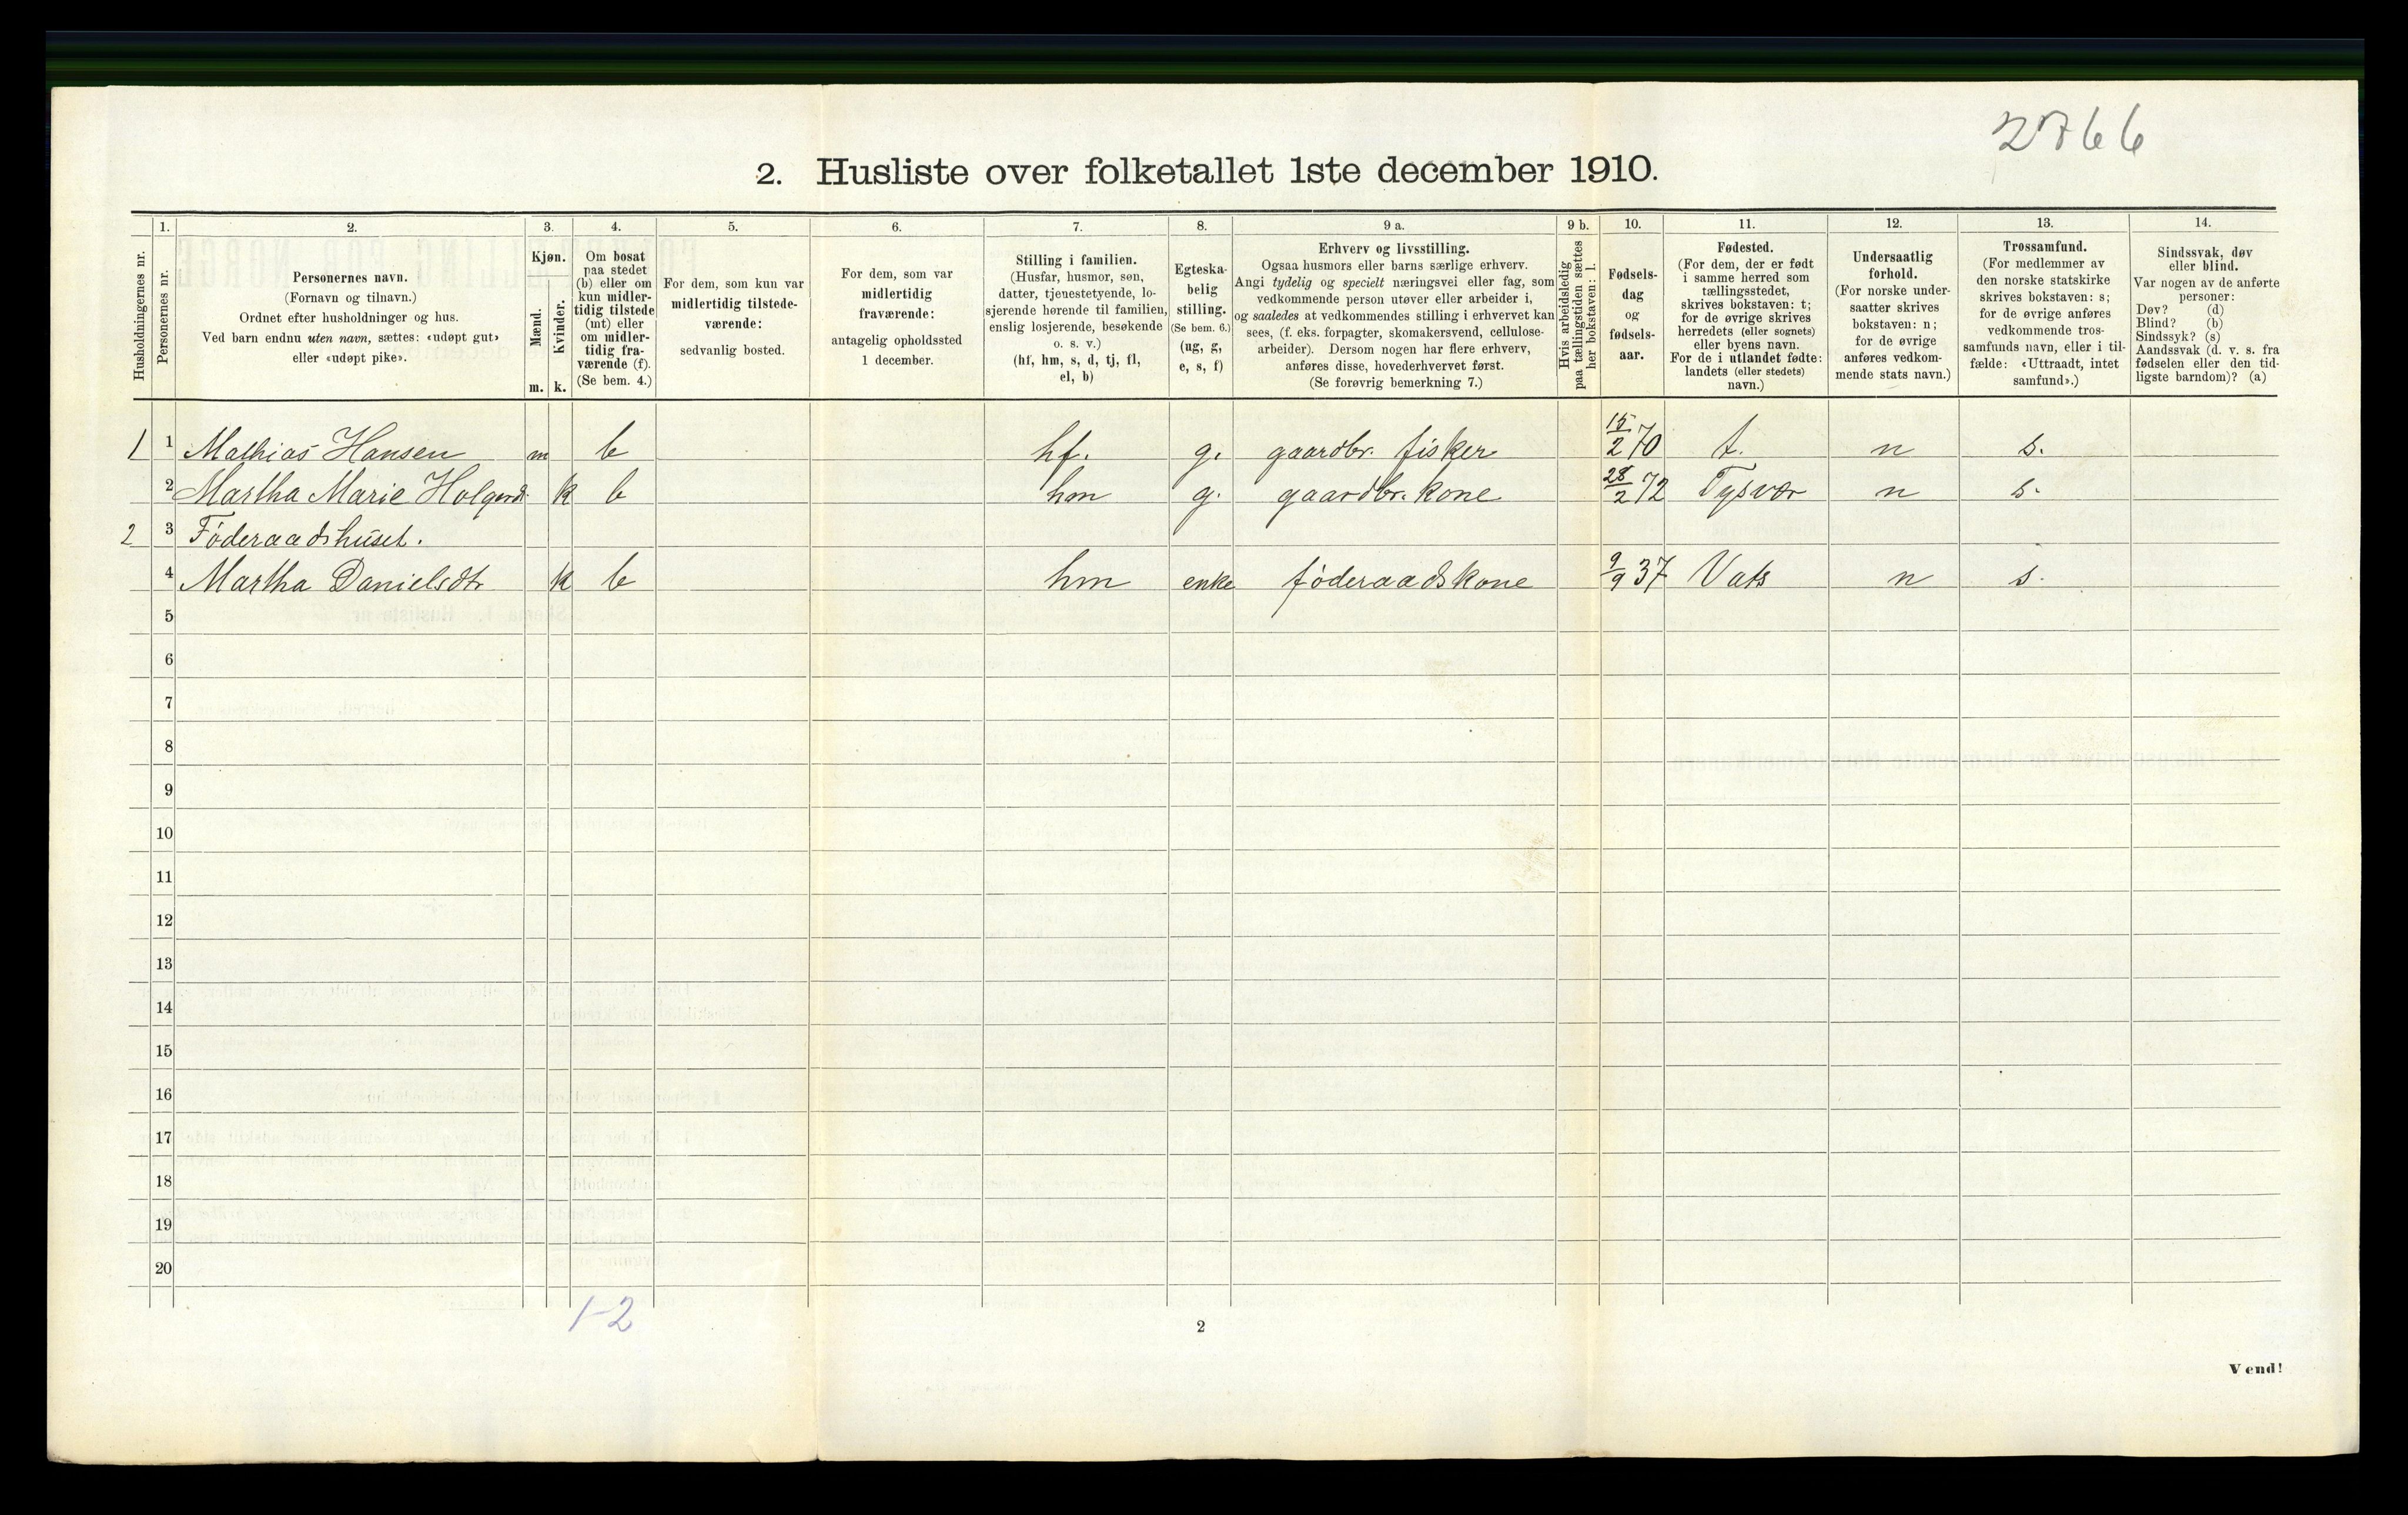 2766
2. Husliste over folketallet 1ste december 1910.
1. 2. 3. 4. 5. 6. 7. 8. 9 a. 9 b. 10. 11. 12. 13. 14.
Husholdningernes nr.
Personernes nr.
Personernes navn.
(Fornavn og tilnavn.)
Ordnet efter husholdninger og hus.
Ved barn endnu uten navn, sættes: «udøpt gut»
eller «udøpt pike».
Kjøn.
Mænd.
Kvinder.
m. k.
Om bosat
paa stedet
(b) eller om
kun midler-
tidig tilstede
(mt) eller
om midler-
tidig fra-
værende (f).
(Se bem. 4.)
For dem, som kun var
midlertidig tilstede-
værende:
sedvanlig bosted.
For dem, som var
midlertidig
fraværende:
antagelig opholdssted
1 december.
Stilling i familien.
(Husfar, husmor, søn,
datter, tjenestetyende, lo-
sjerende hørende til familien,
enslig losjerende, besøkende
o. s. v.)
(hf, hm, s, d, tj, fl,
el, b)
Egteska-
belig
stilling.
(Se bem. 6.)
(ug, g,
e, s, f)
Erhverv og livsstilling.
Ogsaa husmors eller barns særlige erhverv.
Angi tydelig og specielt næringsvei eller fag, som
vedkommende person utøver eller arbeider i,
og saaledes at vedkommendes stilling i erhvervet kan
sees, (f. eks. forpagter, skomakersvend, cellulose-
arbeider). Dersom nogen har flere erhverv,
anføres disse, hovederhvervet først.
(Se forøvrig bemerkning 7.)
Hvis arbeidsledig
paa tællingstiden sættes
her bokstaven: l.
Fødsels-
dag
og
fødsels-
aar.
Fødested.
(For dem, der er født
i samme herred som
tællingsstedet,
skrives bokstaven: t;
for de øvrige skrives
herredets (eller sognets)
eller byens navn.
For de i utlandet fødte:
landets (eller stedets)
navn.)
Undersaatlig
forhold.
(For norske under-
saatter skrives
bokstaven: n;
for de øvrige
anføres vedkom-
mende stats navn.)
Trossamfund.
(For medlemmer av
den norske statskirke
skrives bokstaven: s;
for de øvrige anføres
vedkommende tros-
samfunds navn, eller i til-
fælde: «Uttraadt, intet
samfund».)
Sindssvak, døv
eller blind.
Var nogen av de anførte
personer:
Døv? (d)
Blind? (b)
Sindssyk? (s)
Aandssvak (d. v. s. fra
fødselen eller den tid-
ligste barndom)? (a)
1 1 Mathias Hansen m b hf. g. gaardbr. fisker 15/2 70 t. n s.
2 Martha Marie Holgerd. k b hm g. gaardbr. kone 28/2 72 Tysvær n s.
2 3 Føderaadshuset.
4 Martha Danielsdtr k b hm enke føderaadskone 9/9 37 Vats n s.
5
6
7
8
9
10
11
12
13
14
15
16
17
18
19
20
1-2
2
Vend!